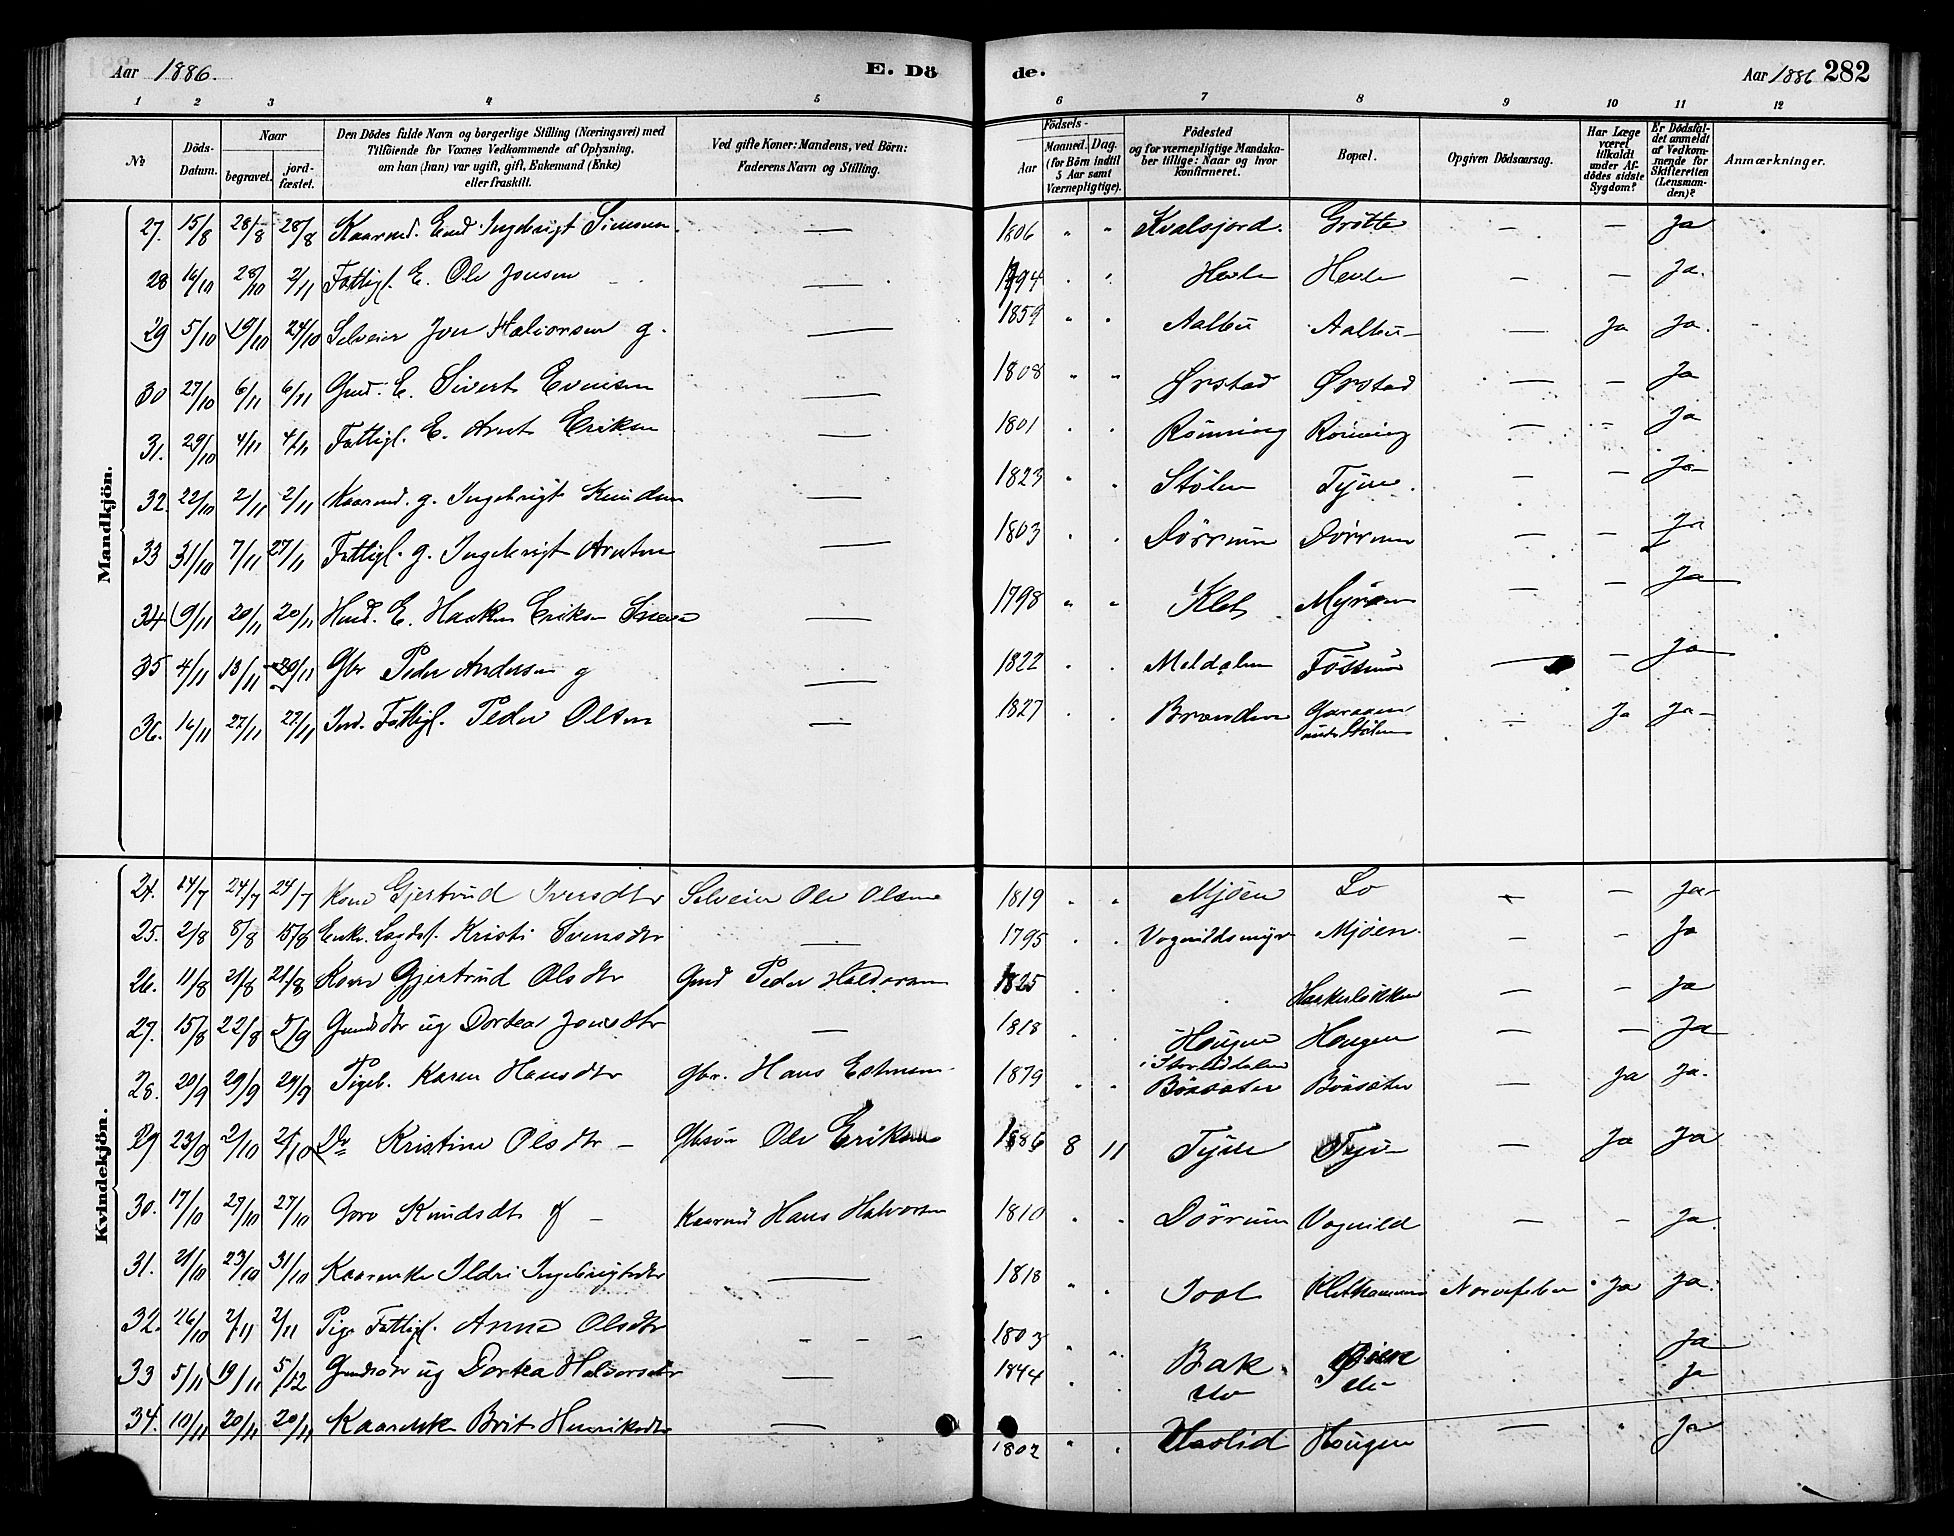 Aar 1886.
E. Dö
de.
Aar 1886 282
1 2 3 4 5 6 7 8 9 10 11 12
No
Döds-Datum.
Naar
begravet.
jordfæstet.
Den Dödes fulde Navn og borgerlige Stilling (Næringsvei) med Tilföiende for Voxnes Vedkommende af Oplysning, om han (han) var ugift, gift, Enkemand (Enke) eller fraskilt.
Ved gifte Koner: Mandens, ved Börn: Faderens Navn og Stilling.
Födsels-
Aar
Maaned. Dag.
(for Börn indtil 5 Aar samt Værnepligtige).
Födested og for værnepligtige Mandskaber tillige: Naar og hvor konfirmeret.
Bopæl.
Opgiven Dödsaarsag.
Har Læge været tilkaldt under Afdödes sidste Sygdom?
Er Dödsfaldet anmeldt af Vedkommende for Skifteretten (Lensmanden)?
Anmærkninger.
Mandkjön.
27. 15/8 28/8 28/8 Kaarmd. Emd. Ingebrigt Simensen — 1806 " " Kvalsjord. Grötte — — Ja
28 16/10 28/10 2/11 Fattigl. E. Ole Jonsen — 1794 " " Hevle Hevle — — Ja.
29 5/10 19/10 24/10 Selveier Jon Halvorsen g. — 1859 " " Aalbu Aalbu — Ja Ja.
30 27/10 6/11 6/11 Gmd. E. Sivert Evensen — 1808 " " Ørstad Ørstad — — Ja
31. 29/10 4/11 4/11 Fattigl. E. Arnt Eriksen — 1801 " " Rönning Rönning — — Ja
32. 22/10 2/11 2/11 Kaarmd. g. Ingebrigt Knudsen — 1823 " " Stölen Tyire. — — Ja
33 31/10 7/11 27/11 Fattigl. g. Ingebrigt Arntsen — 1803 " " Dörrum Dörrum — — Ja
34 9/11 20/11 20/11 Hmd. E. Haaken Eriksen — 1798 " " Klet Myren — — Ja
35 4/11 13/11 20/11 Gbr Peder Andersen g — 1822 " " Meldalen Fossum — — Ja
36. 16/11 27/11 27/11 Ind. Fattigl. Peder Olsen — 1827 " " Brænden
under Stölen — Ja Ja
Kvindekjön.
24. 14/7 24/7 24/7 Kone Gjertrud Iversdtr Selveier Ole Olsen 1819 " " Mjöen Lo — — Ja
25. 2/8 8/8 15/8 Enke. Lægdsl. Kristi Svensdtr — 1795 " " Vognildsmyr Mjöen. — — Ja
26. 11/8 21/8 21/8 Kone Gjertrud Olsdtr Gmd Peder Haldorsen 1825 " " Haakerløkken — — Ja
27. 15/8 22/8 5/9 Gmdsdtr ug Dortea Jonsdtr — 1818 " " Hougen Hougen — — Ja
i Storlidalen
28. 20/9 29/9 29/9 Pigeb. Karen Hansdtr Gbr. Hans Estensen 1879 " " Börsæter Börsæter — Ja Ja.
29 23/9 2/10 2/10 Do Kristine Olsdtr — Gbsön Ole Eriksen 1886 8 11 Tyire Tyire — Ja Ja
30. 17/10 27/10 27/10 Goro Knudsdtr g — Kaarmd Hans Halvorsen 1810 " " Dörrum Vognild — — Ja.
31. 21/10 23/10 31/10 Kaarenke Ildri Ingebrigtsdtr — 1818 " " Klethammer Nervefeber Ja Ja.
32. 26/10 2/11 2/11 Pige Fattigl. Anne Olsdtr — 1803 " " Bak Ja
33 5/11 19/11 5/12 Gmdsdtr ug Dortea Halvorsdtr — 1844 " " do do Ja
34. 10/11 20/11 20/11 Kaarenke Brit Henriksdtr — 1802 " " Haslid Hougen — Ja